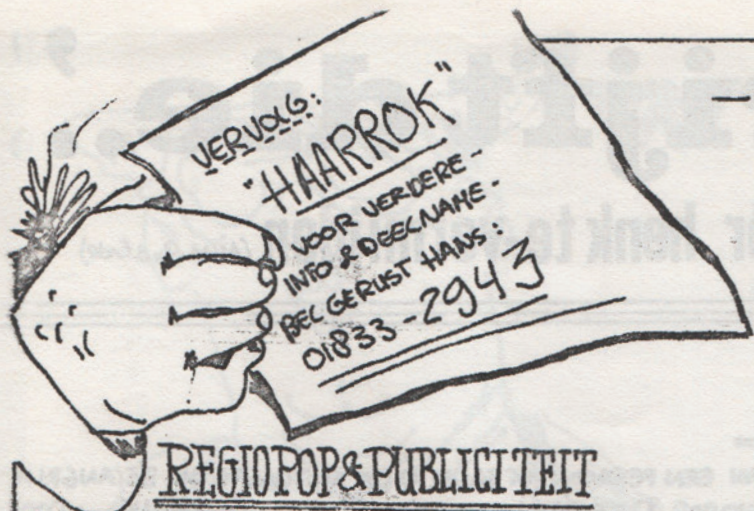 VERVOLG:
"HAARROK"
VOOR VERDERE-
INFO & DEELNAME-
BEL GERUST HANS:
01833-2943
REGIOPOP & PUBLICITEIT